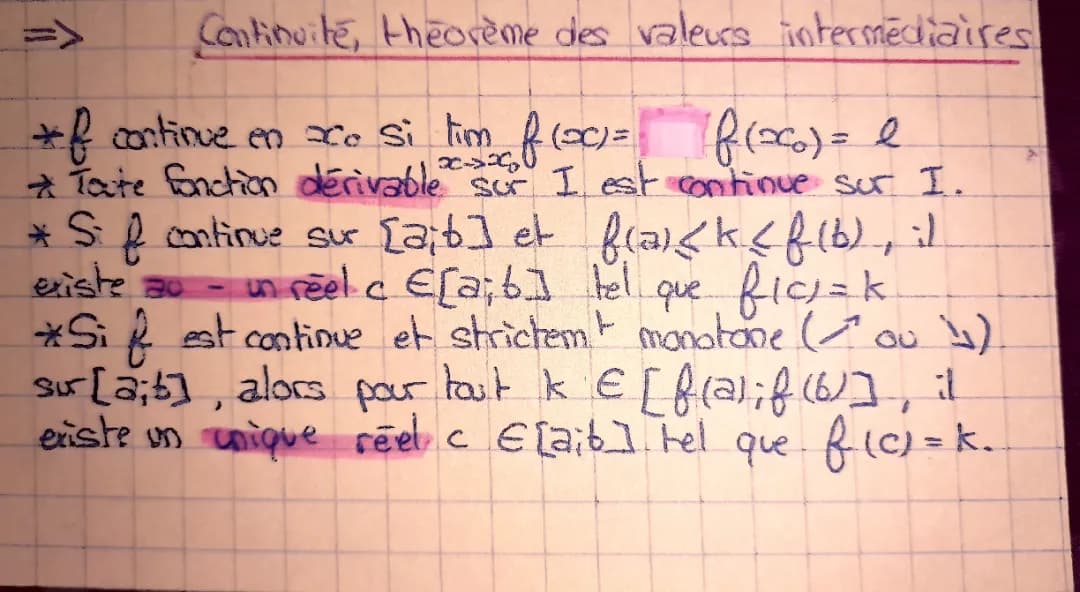 => Continuité, théorème des valeurs intermédiaires
* f continue en x₀ si lim f(x) = f(x₀) = l
x→x₀
* Toute fonction dérivable sur I est continue sur I.
* Si f continue sur [a;b] et f(a) ≤ k ≤ f(b), il
existe au - un réel c ∈ [a;b] tel que f(c) = k
* Si f est continue et strictemt monotone (↗ ou ↘)
sur [a;b], alors pour tout k ∈ [f(a);f(b)], il
existe un unique réel c ∈ [a;b] tel que f(c) = k.